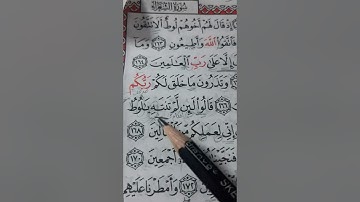 سُورَةُ الشُّعَرَاءِ
إِذْ قَالَ لَهُمْ أَخُوهُمْ لُوطٌ أَلَا تَتَّقُونَ
فَاتَّقُوا اللَّهَ وَأَطِيعُونِ ١٦٣ وَمَا
إِلَّا عَلَىٰ رَبِّ الْعَٰلَمِينَ
وَتَذَرُونَ مَا خَلَقَ لَكُمْ رَبُّكُم
١٦٦ قَالُوا لَئِن لَّمْ تَنتَهِ يَٰلُوطُ
إِنِّي لِعَمَلِكُم مِّنَ الْقَالِينَ ١٦٨
أَجْمَعِينَ ١٧٠
١٧٢ وَأَمْطَرْنَا عَلَيْهِم